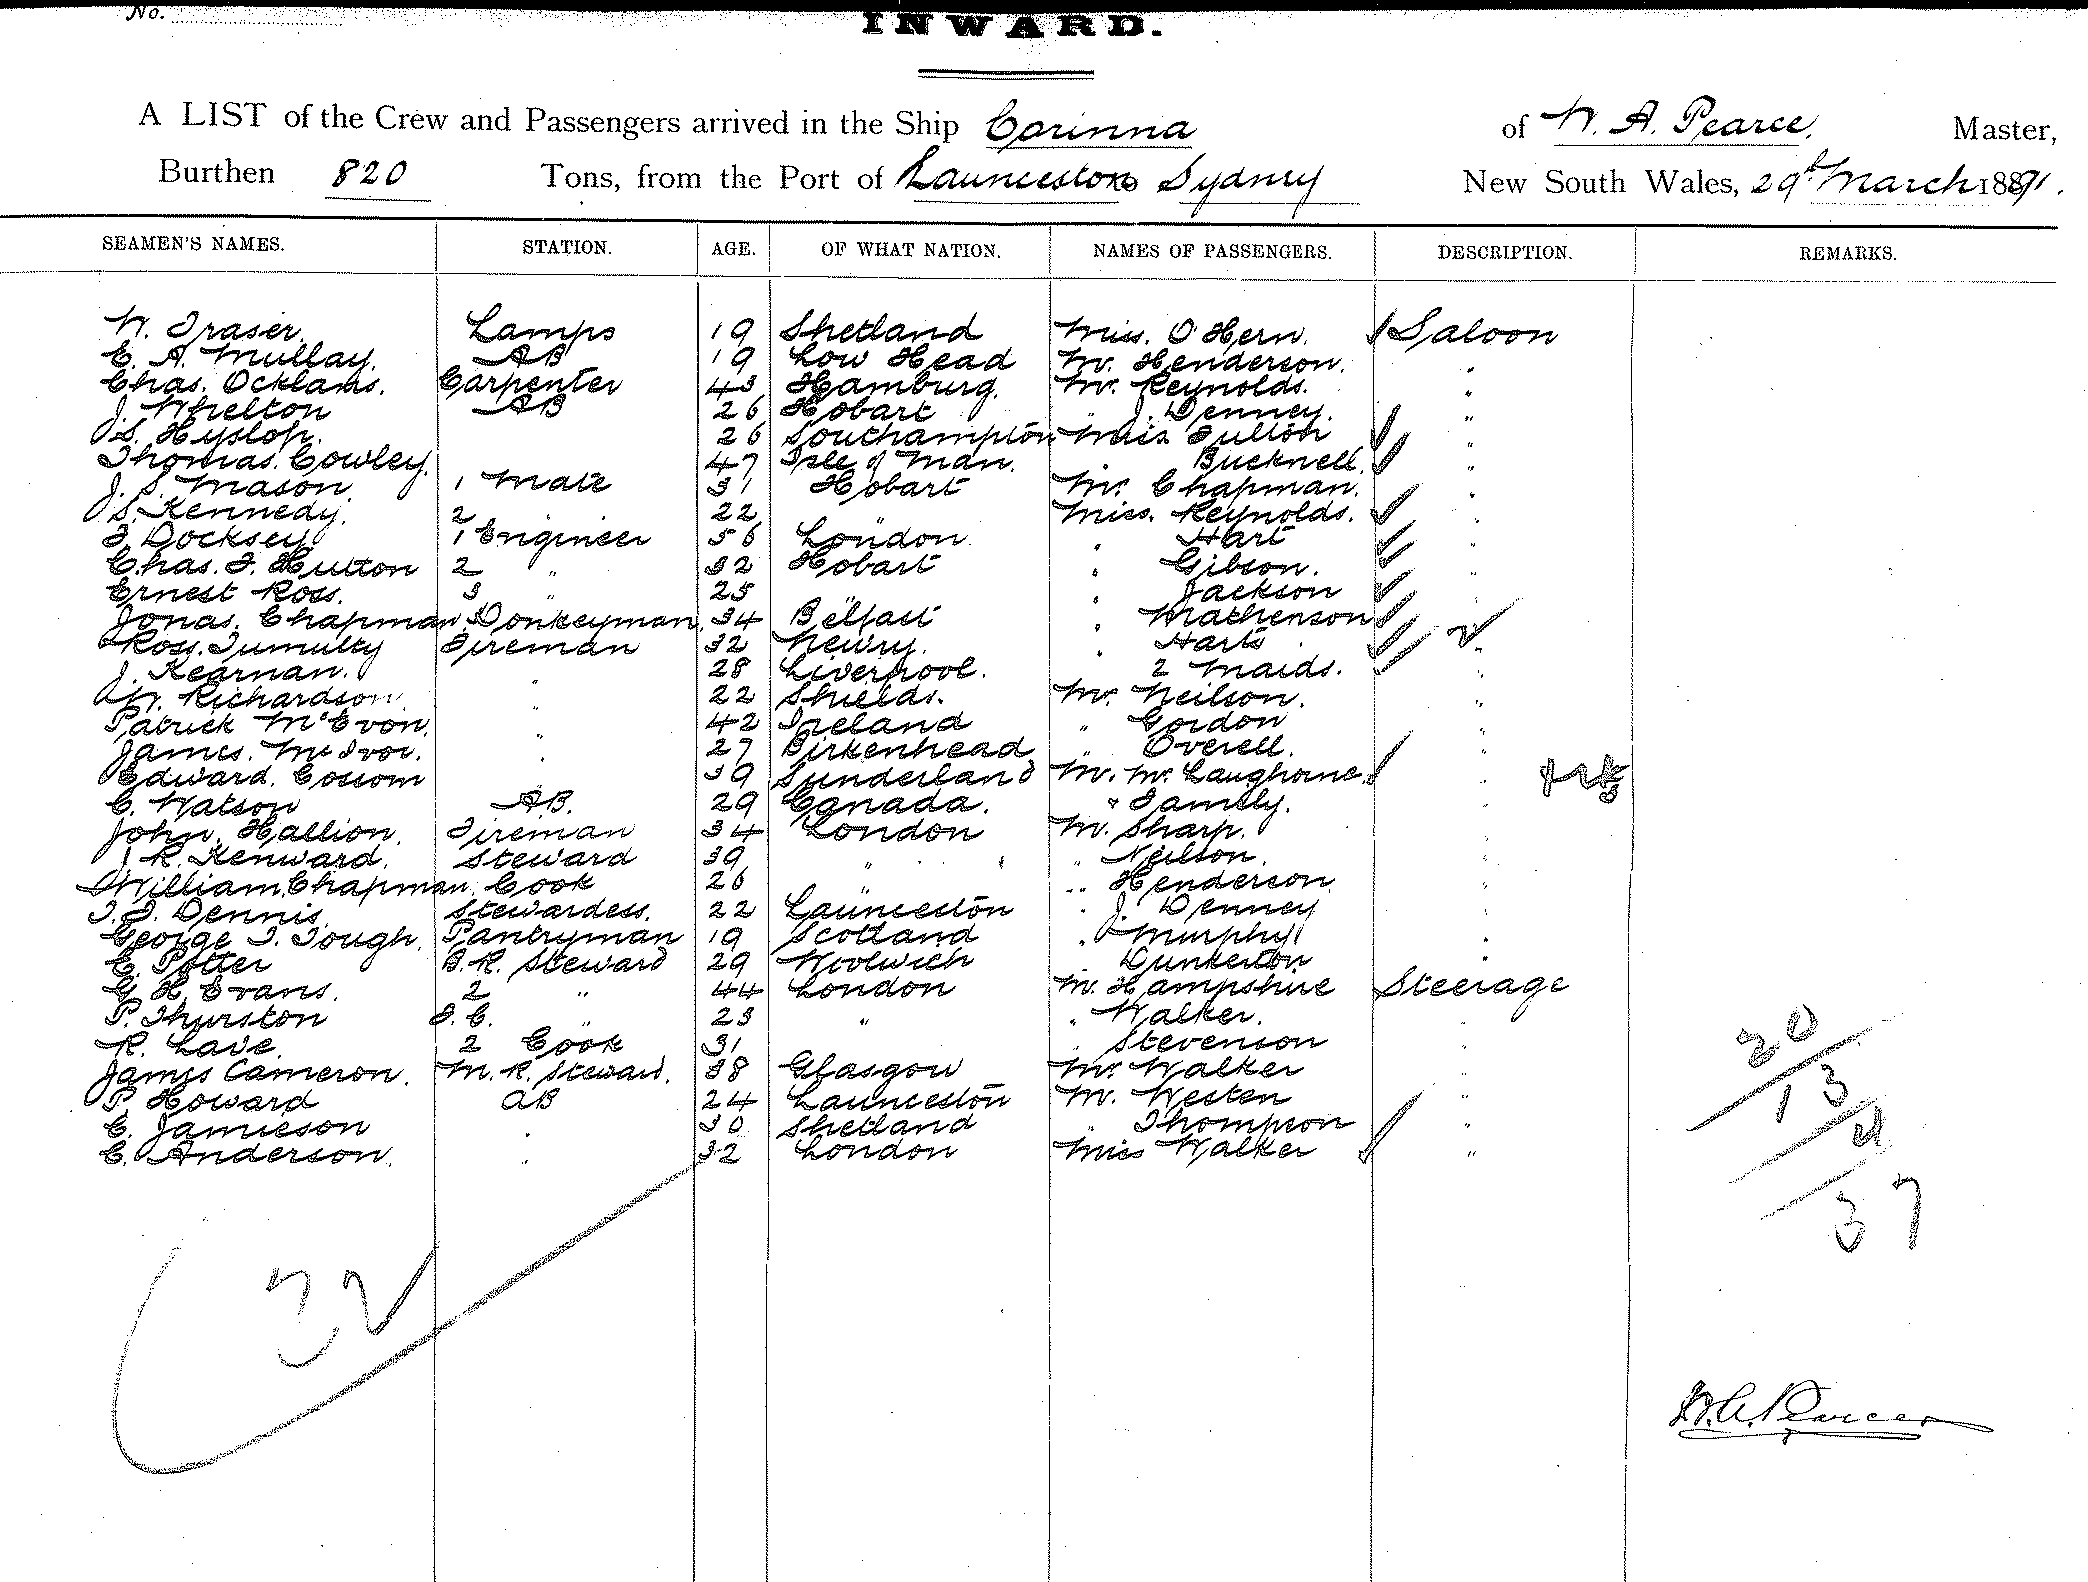 No.
INWARD.
A LIST of the Crew and Passengers arrived in the Ship Corinna of W. A. Pearce. Master,
Burthen 820 Tons, from the Port of Launceston to Sydney New South Wales, 29th March 1891.
SEAMEN'S NAMES. STATION. AGE. OF WHAT NATION. NAMES OF PASSENGERS. DESCRIPTION. REMARKS.
W. Fraser. Lamps 19 Shetland Miss. O'Hern. Saloon
C. A. Mullay. AB 19 Low Head Mr. Henderson. "
Chas. Ocklams. Carpenter 43 Hamburg. Mr. Reynolds. "
J. Whelton AB 26 Hobart " J. Denney. "
S. Hyslop. 26 Southampton Miss Fulton "
Thomas. Cowley. 47 Isle of Man. " Bucknell. "
J. S. Mason. 1 Mate 31 Hobart Mr. Chapman. "
S. Kennedy. 2 " 22 " Miss. Reynolds. "
F Docksey 1 Engineer 56 London " Hart "
Chas. F. Hutton 2 " 32 Hobart " Gibson. "
Ernest Ross. 3 " 25 " " Jackson "
Jonas. Chapman Donkeyman 34 Belfast " Mathenson "
Ross. Tumulty Fireman 32 Newry. " Harts "
J. Kearnan. " 28 Liverpool. 2 Maids. "
W. Richardson. " 22 Shields. Mr. Neilson. "
Patrick McEvon. " 42 Ireland " Gordon "
James. McIvor. " 27 Birkenhead " Overell. "
Edward. Cossom " 39 Sunderland Mr. Mc. Laughorne. "
C. Watson AB. 29 Canada. " Family. "
John. Hallion. Fireman 34 London M. Sharp. "
J. R. Kenward. Steward 39 " " Neilson. "
William Chapman. Cook 26 " " Henderson "
T. J. Dennis. Stewardess. 22 Launceston " J. Denney "
George T. Tough. Pantryman 19 Scotland " Murphy "
C. Potter B. R. Steward 29 Woolwich " Dunkerton "
G H. Evans. 2 " 44 London M. Hampshire Steerage
P. Thurston F. C. " 23 " " Walker. "
R. Lave. 2 Cook 31 " Stevenson "
James Cameron. M. R. Steward. 38 Glasgow Mr. Walker "
P Howard AB 24 Launceston M. Westen "
C. Jamieson " 30 Shetland " Thompson "
C. Anderson. " 32 London Miss Walker "
20
13
4
37
32
W. A. Pearce